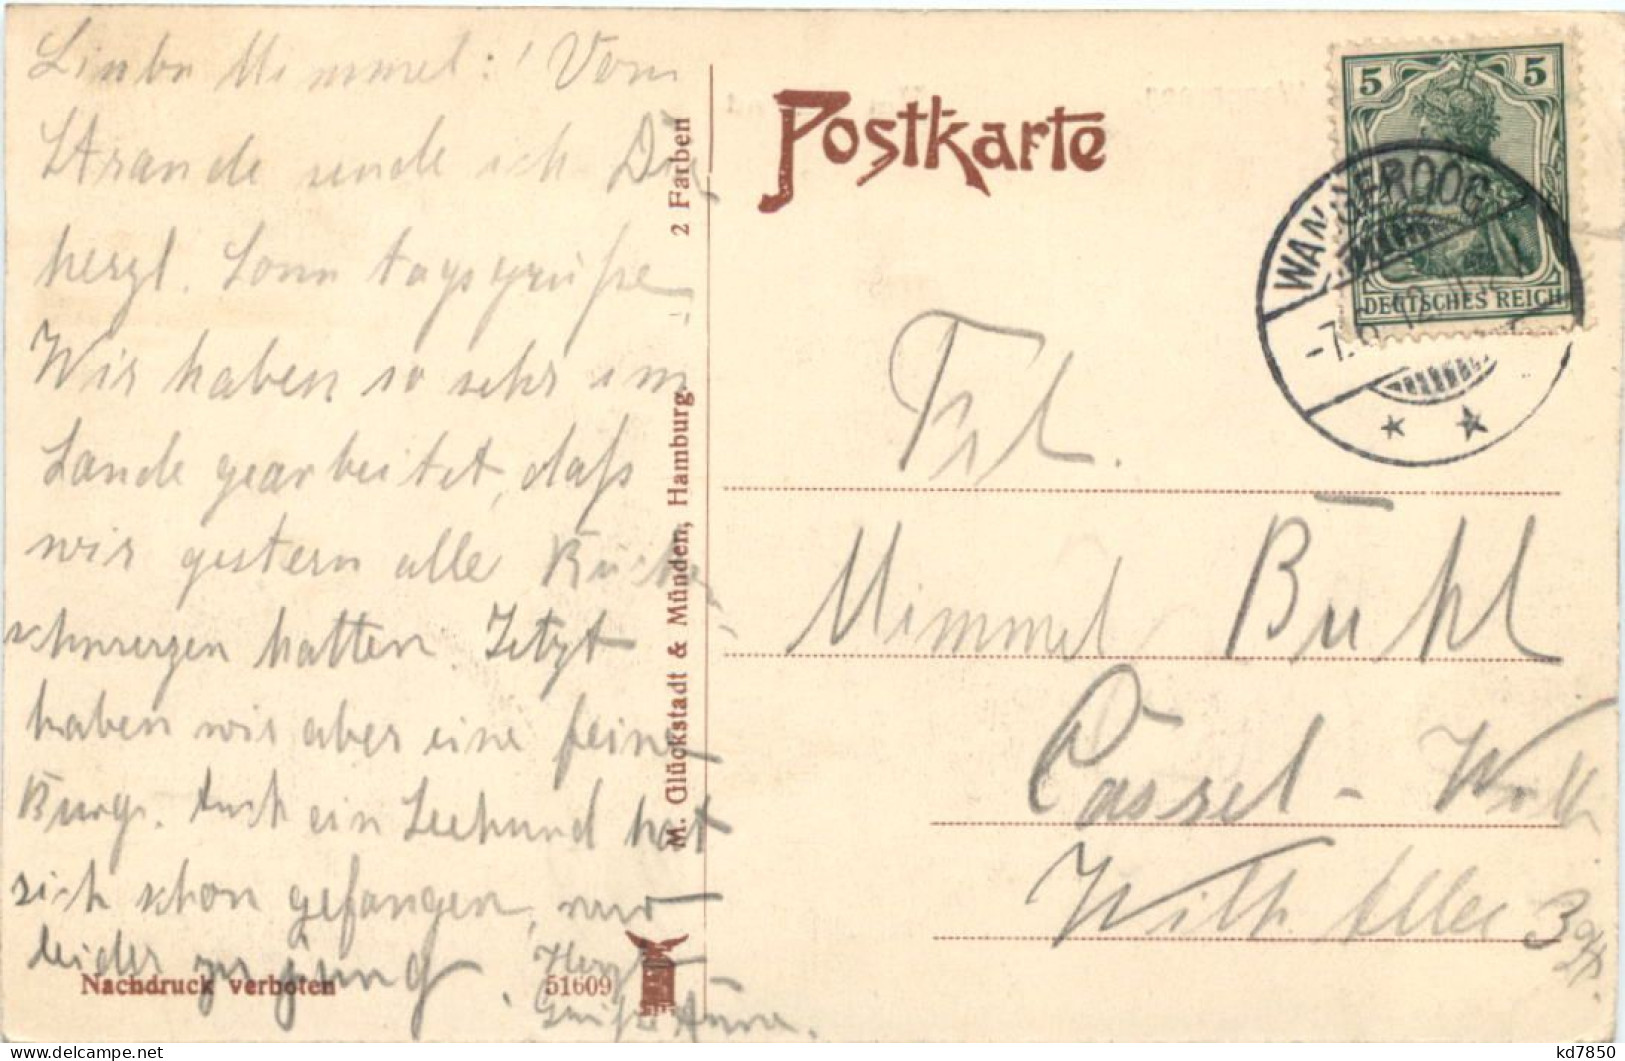 Liebe Mimmel! Vom
Strande sende ich Dir
herzl. Sonntagsgrüße
Wir haben so sehr im
Sande gearbeitet, daß
wir gestern alle Rücken-
schmerzen hatten. Jetzt
haben wir aber eine feine
Burg. Auch ein Seehund hat
sich schon gefangen, nur
leider zu jung
Herzl.
Grüße Anna.
Nachdruck verboten
51609
M. Glückstadt & Münden, Hamburg. 2 Farben
Postkarte
5 5
DEUTSCHES REICH
WANGEROOG
-7.
* *
Frl.
Mimmel Buhl
Cassel - Wilh
Wilh. Allee 3
kd7850